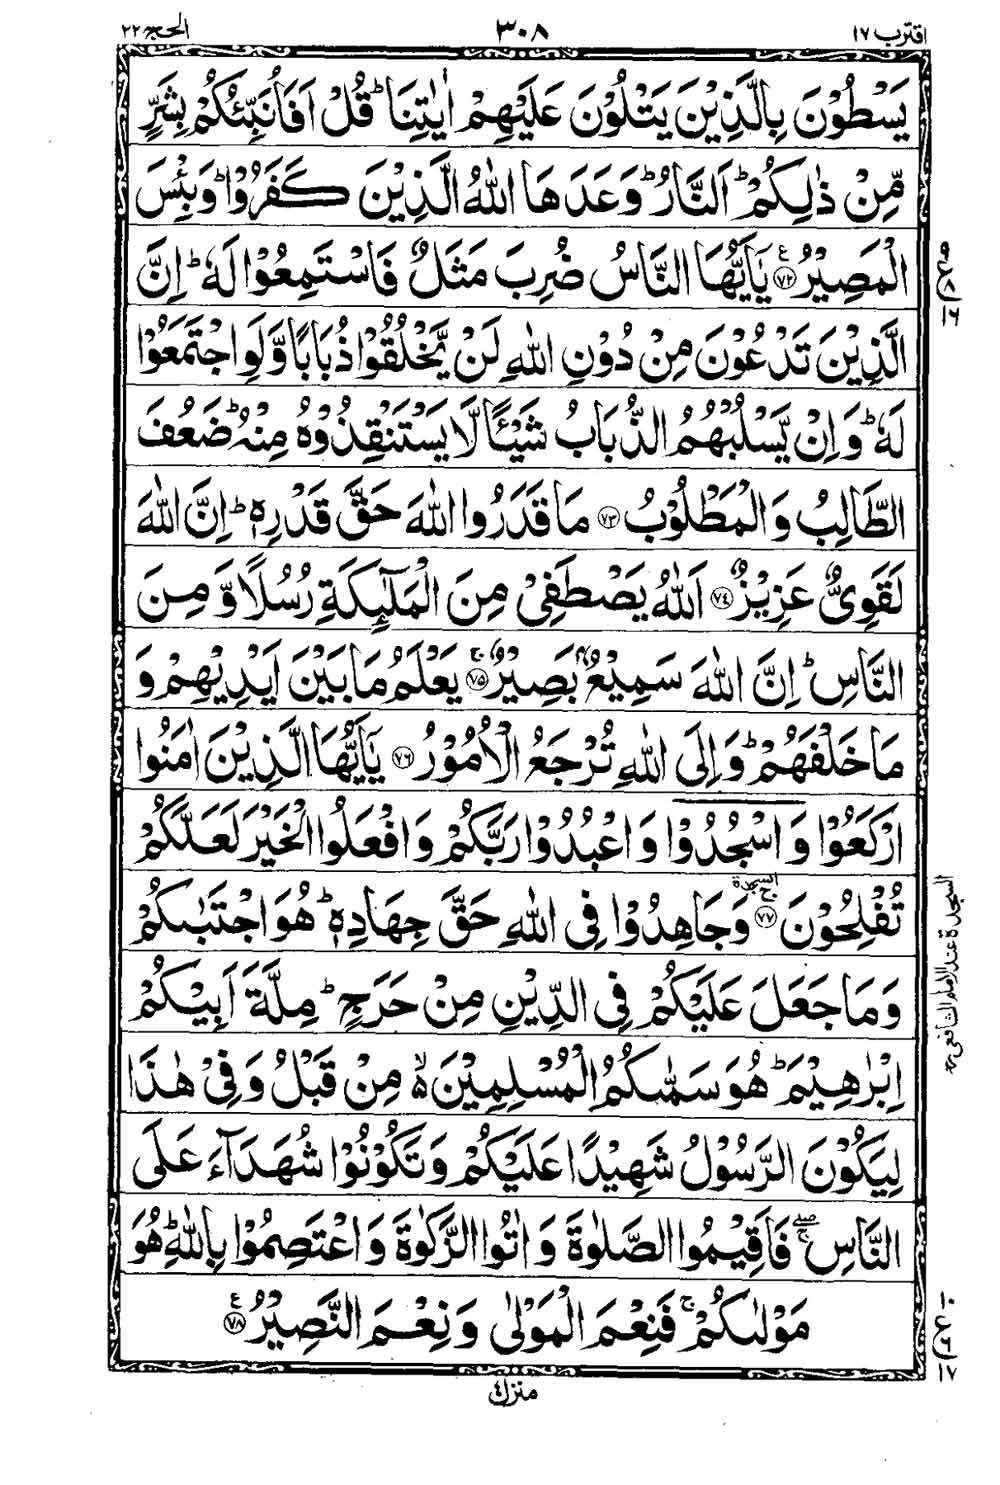 اقترب ١٧ ٣٠٨ الحج ٢٢
يَسْطُوْنَ بِالَّذِيْنَ يَتْلُوْنَ عَلَيْهِمْ اٰيٰتِنَا ؕ قُلْ اَفَاُنَبِّئُكُمْ بِشَرٍّ
مِّنْ ذٰلِكُمْ ؕ اَلنَّارُ ؕ وَعَدَهَا اللّٰهُ الَّذِيْنَ كَفَرُوْا ؕ وَبِئْسَ
الْمَصِيْرُ ﴿٧٢﴾ۧ يٰۤاَيُّهَا النَّاسُ ضُرِبَ مَثَلٌ فَاسْتَمِعُوْا لَهٗ ؕ اِنَّ
الَّذِيْنَ تَدْعُوْنَ مِنْ دُوْنِ اللّٰهِ لَنْ يَّخْلُقُوْا ذُبَابًا وَّلَوِ اجْتَمَعُوْا
لَهٗ ؕ وَاِنْ يَّسْلُبْهُمُ الذُّبَابُ شَيْـًٔا لَّا يَسْتَنْقِذُوْهُ مِنْهُ ؕ ضَعُفَ
الطَّالِبُ وَالْمَطْلُوْبُ ﴿٧٣﴾ مَا قَدَرُوا اللّٰهَ حَقَّ قَدْرِهٖ ؕ اِنَّ اللّٰهَ
لَقَوِىٌّ عَزِيْزٌ ﴿٧٤﴾ اَللّٰهُ يَصْطَفِىْ مِنَ الْمَلٰٓئِكَةِ رُسُلًا وَّمِنَ
النَّاسِ ؕ اِنَّ اللّٰهَ سَمِيْعٌۢ بَصِيْرٌ ﴿٧٥﴾ۚ يَعْلَمُ مَا بَيْنَ اَيْدِيْهِمْ وَ
مَا خَلْفَهُمْ ؕ وَاِلَى اللّٰهِ تُرْجَعُ الْاُمُوْرُ ﴿٧٦﴾ يٰۤاَيُّهَا الَّذِيْنَ اٰمَنُوا
ارْكَعُوْا وَاسْجُدُوْا وَاعْبُدُوْا رَبَّكُمْ وَافْعَلُوا الْخَيْرَ لَعَلَّكُمْ
تُفْلِحُوْنَ ﴿٧٧﴾ۚ السجدة وَجَاهِدُوْا فِى اللّٰهِ حَقَّ جِهَادِهٖ ؕ هُوَ اجْتَبٰىكُمْ
وَمَا جَعَلَ عَلَيْكُمْ فِى الدِّيْنِ مِنْ حَرَجٍ ؕ مِلَّةَ اَبِيْكُمْ
اِبْرٰهِيْمَ ؕ هُوَ سَمّٰىكُمُ الْمُسْلِمِيْنَ ۙ۬ مِنْ قَبْلُ وَفِىْ هٰذَا
لِيَكُوْنَ الرَّسُوْلُ شَهِيْدًا عَلَيْكُمْ وَتَكُوْنُوْا شُهَدَآءَ عَلَى
النَّاسِ ۖۚ فَاَقِيْمُوا الصَّلٰوةَ وَاٰتُوا الزَّكٰوةَ وَاعْتَصِمُوْا بِاللّٰهِ ؕ هُوَ
مَوْلٰىكُمْ ۚ فَنِعْمَ الْمَوْلٰى وَنِعْمَ النَّصِيْرُ ﴿٧٨﴾ۧ
منزل ٤
السجدة عند الامام الشافعي